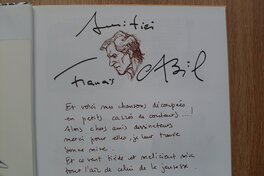 Amitiés
Et voici mes chansons découpées
en petits carrés de couleurs ...!
Alors chers amis dessinateurs
merci pour elles, je leur trouve
bonne mine.
Et ce vent tiède et
tout l'air de celui de la jeunesse